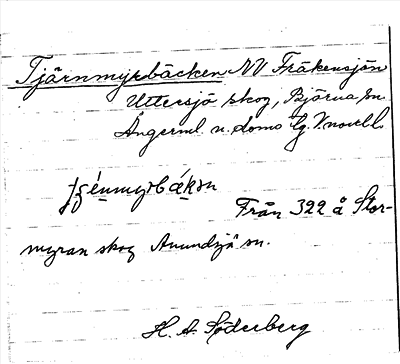 Tjärnmyrbäcken NV Fräkensjön
Uttersjö skog, Björna sn
Ångerml. n. doms lg. V.norrl. l.
Från 322 å Stor-
myran skog Anundsjö sn.
H. A. Söderberg